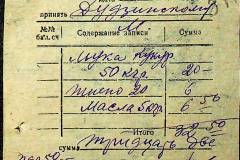 принять Дудзинскому
№№ бал. сч Содержание записи Сумма
Мука кукур.
50 кгр. 20-
пшено 20 6
Масла 5 кгр. 6-50
Итого 32 50
сумма тридцать две
50